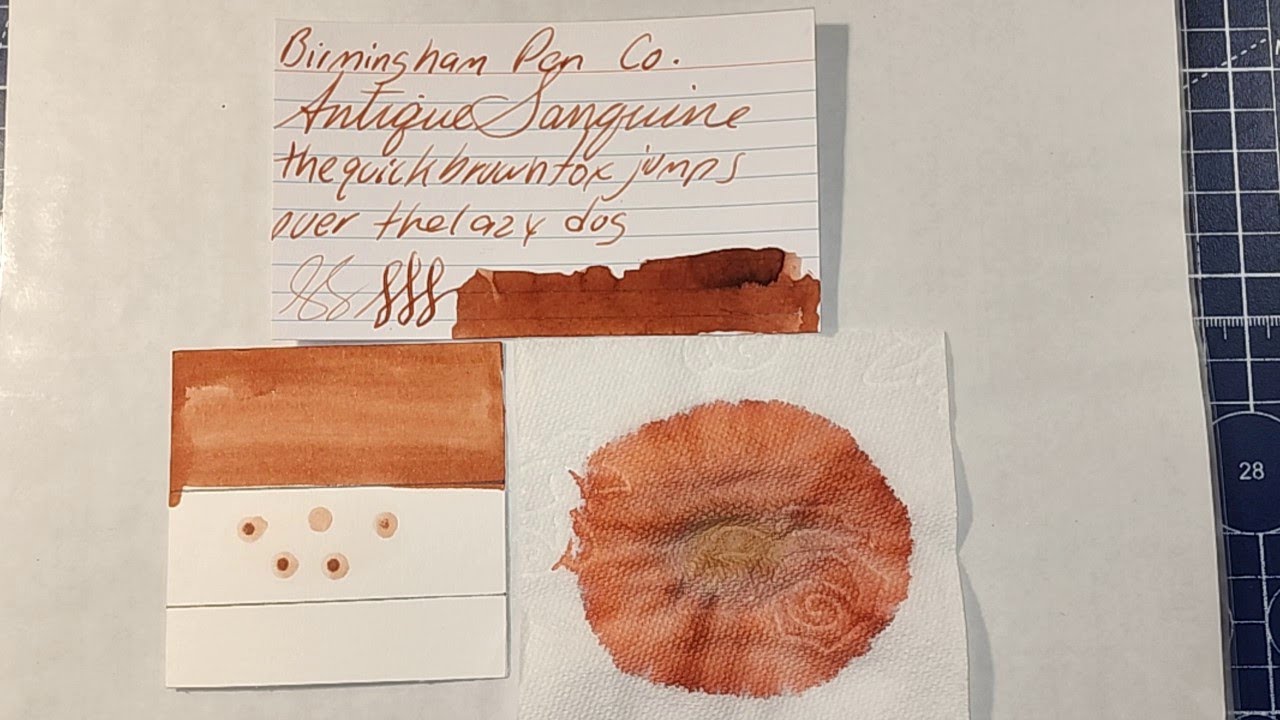 Birmingham Pen Co.
Antique Sanguine
the quick brown fox jumps
over the lazy dog
28